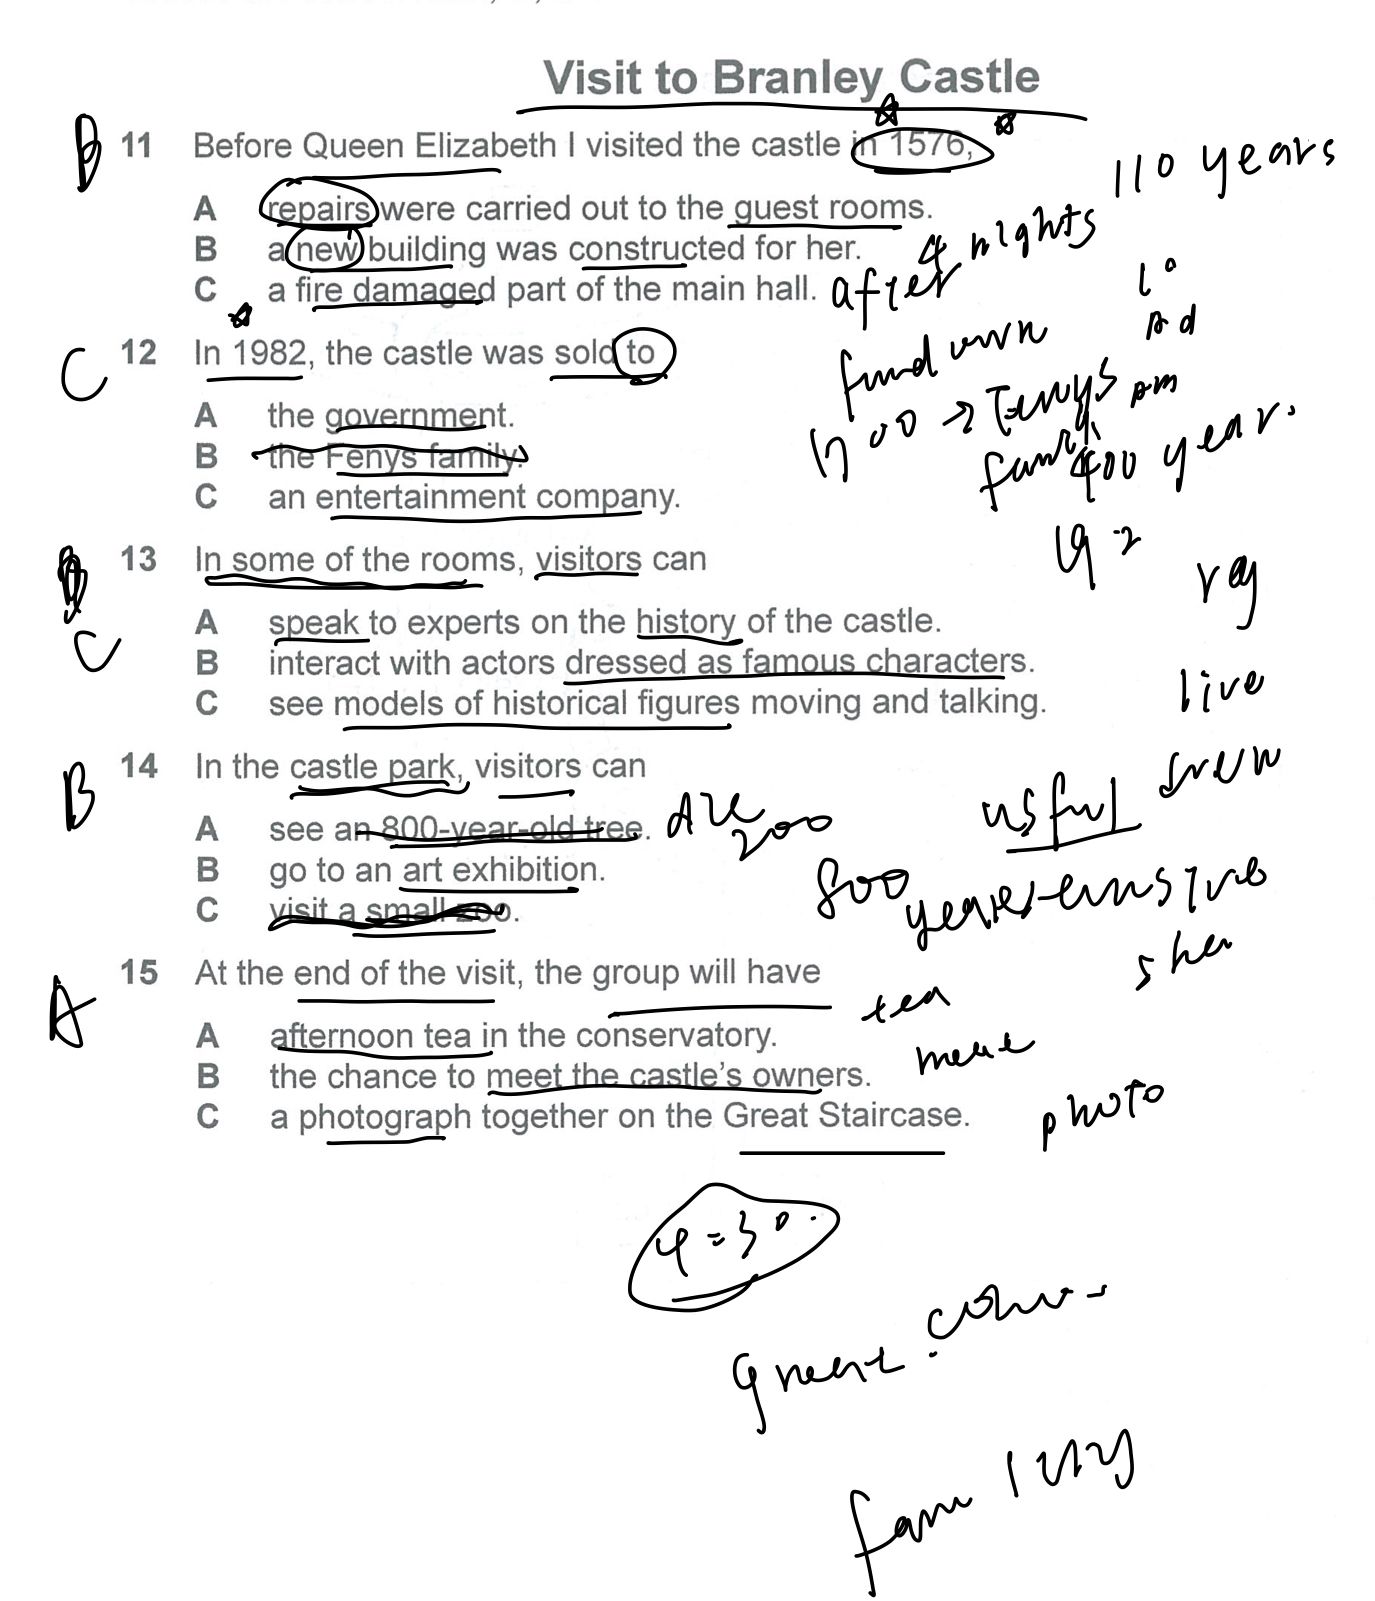 Visit to Branley Castle
B 11 Before Queen Elizabeth I visited the castle in 1576,
110 years
A repairs were carried out to the guest rooms.
4 nights
B a new building was constructed for her.
C a fire damaged part of the main hall. after
C 12 In 1982, the castle was sold to
A the government.
B the Fenys family.
400 year.
C an entertainment company.
B 13 In some of the rooms, visitors can
C
A speak to experts on the history of the castle.
B interact with actors dressed as famous characters.
C see models of historical figures moving and talking.
live
B 14 In the castle park, visitors can
A see an 800-year-old tree.
200
B go to an art exhibition.
800
C visit a small zoo.
A 15 At the end of the visit, the group will have
tea
A afternoon tea in the conservatory.
B the chance to meet the castle's owners.
C a photograph together on the Great Staircase.
photo